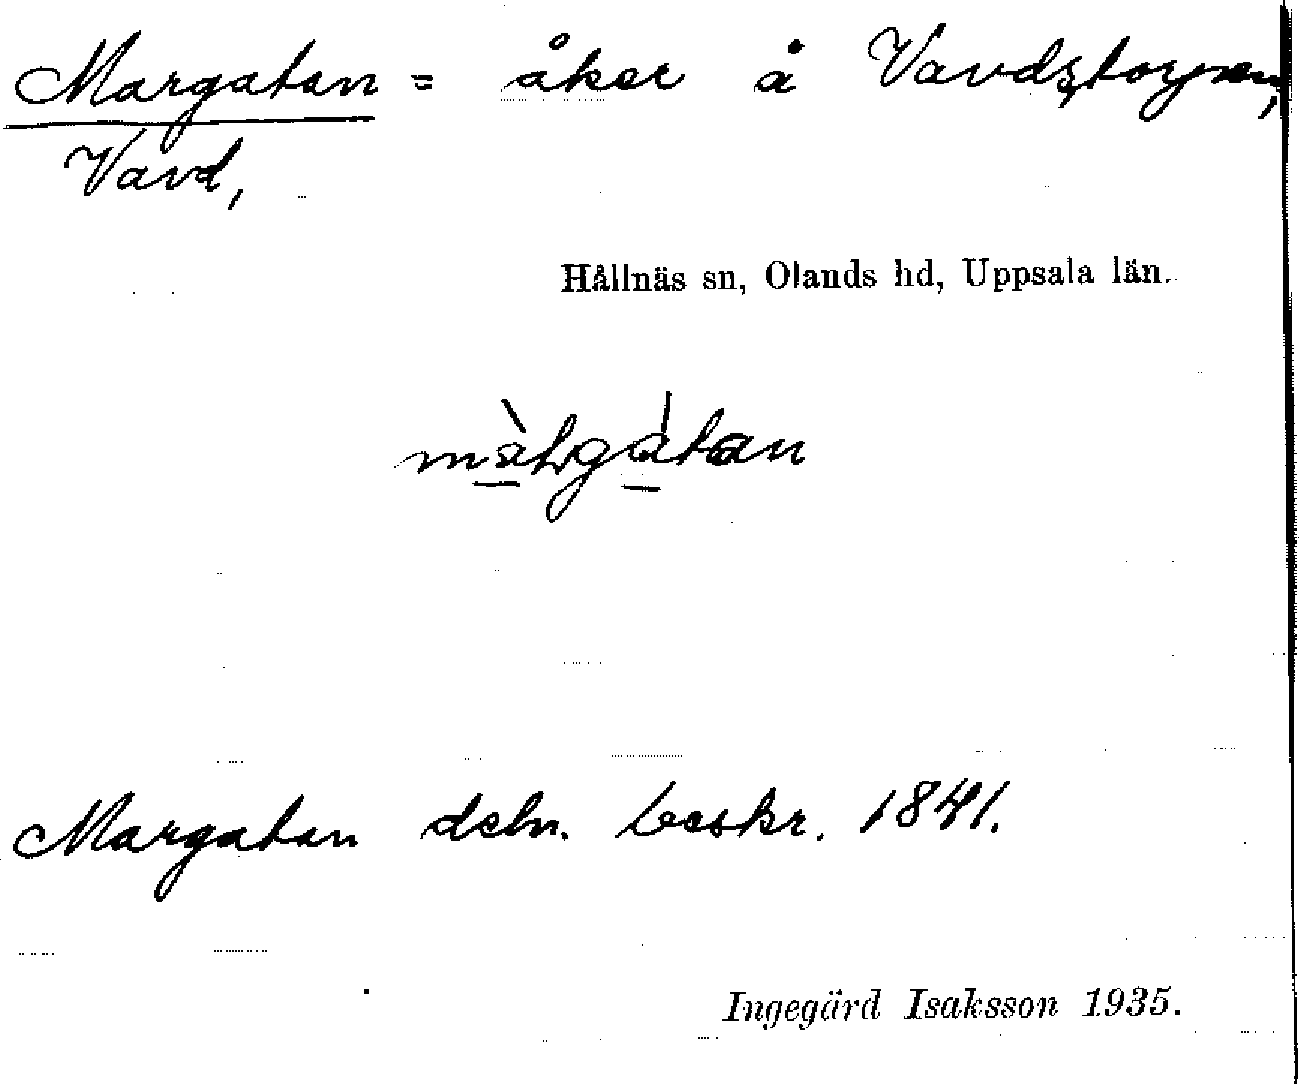 Margatan = åker å Vavdstorpen,
Vavd,
Hållnäs sn, Olands hd, Uppsala län.
Margatan deln. beskr. 1841.
Ingegärd Isaksson 1935.